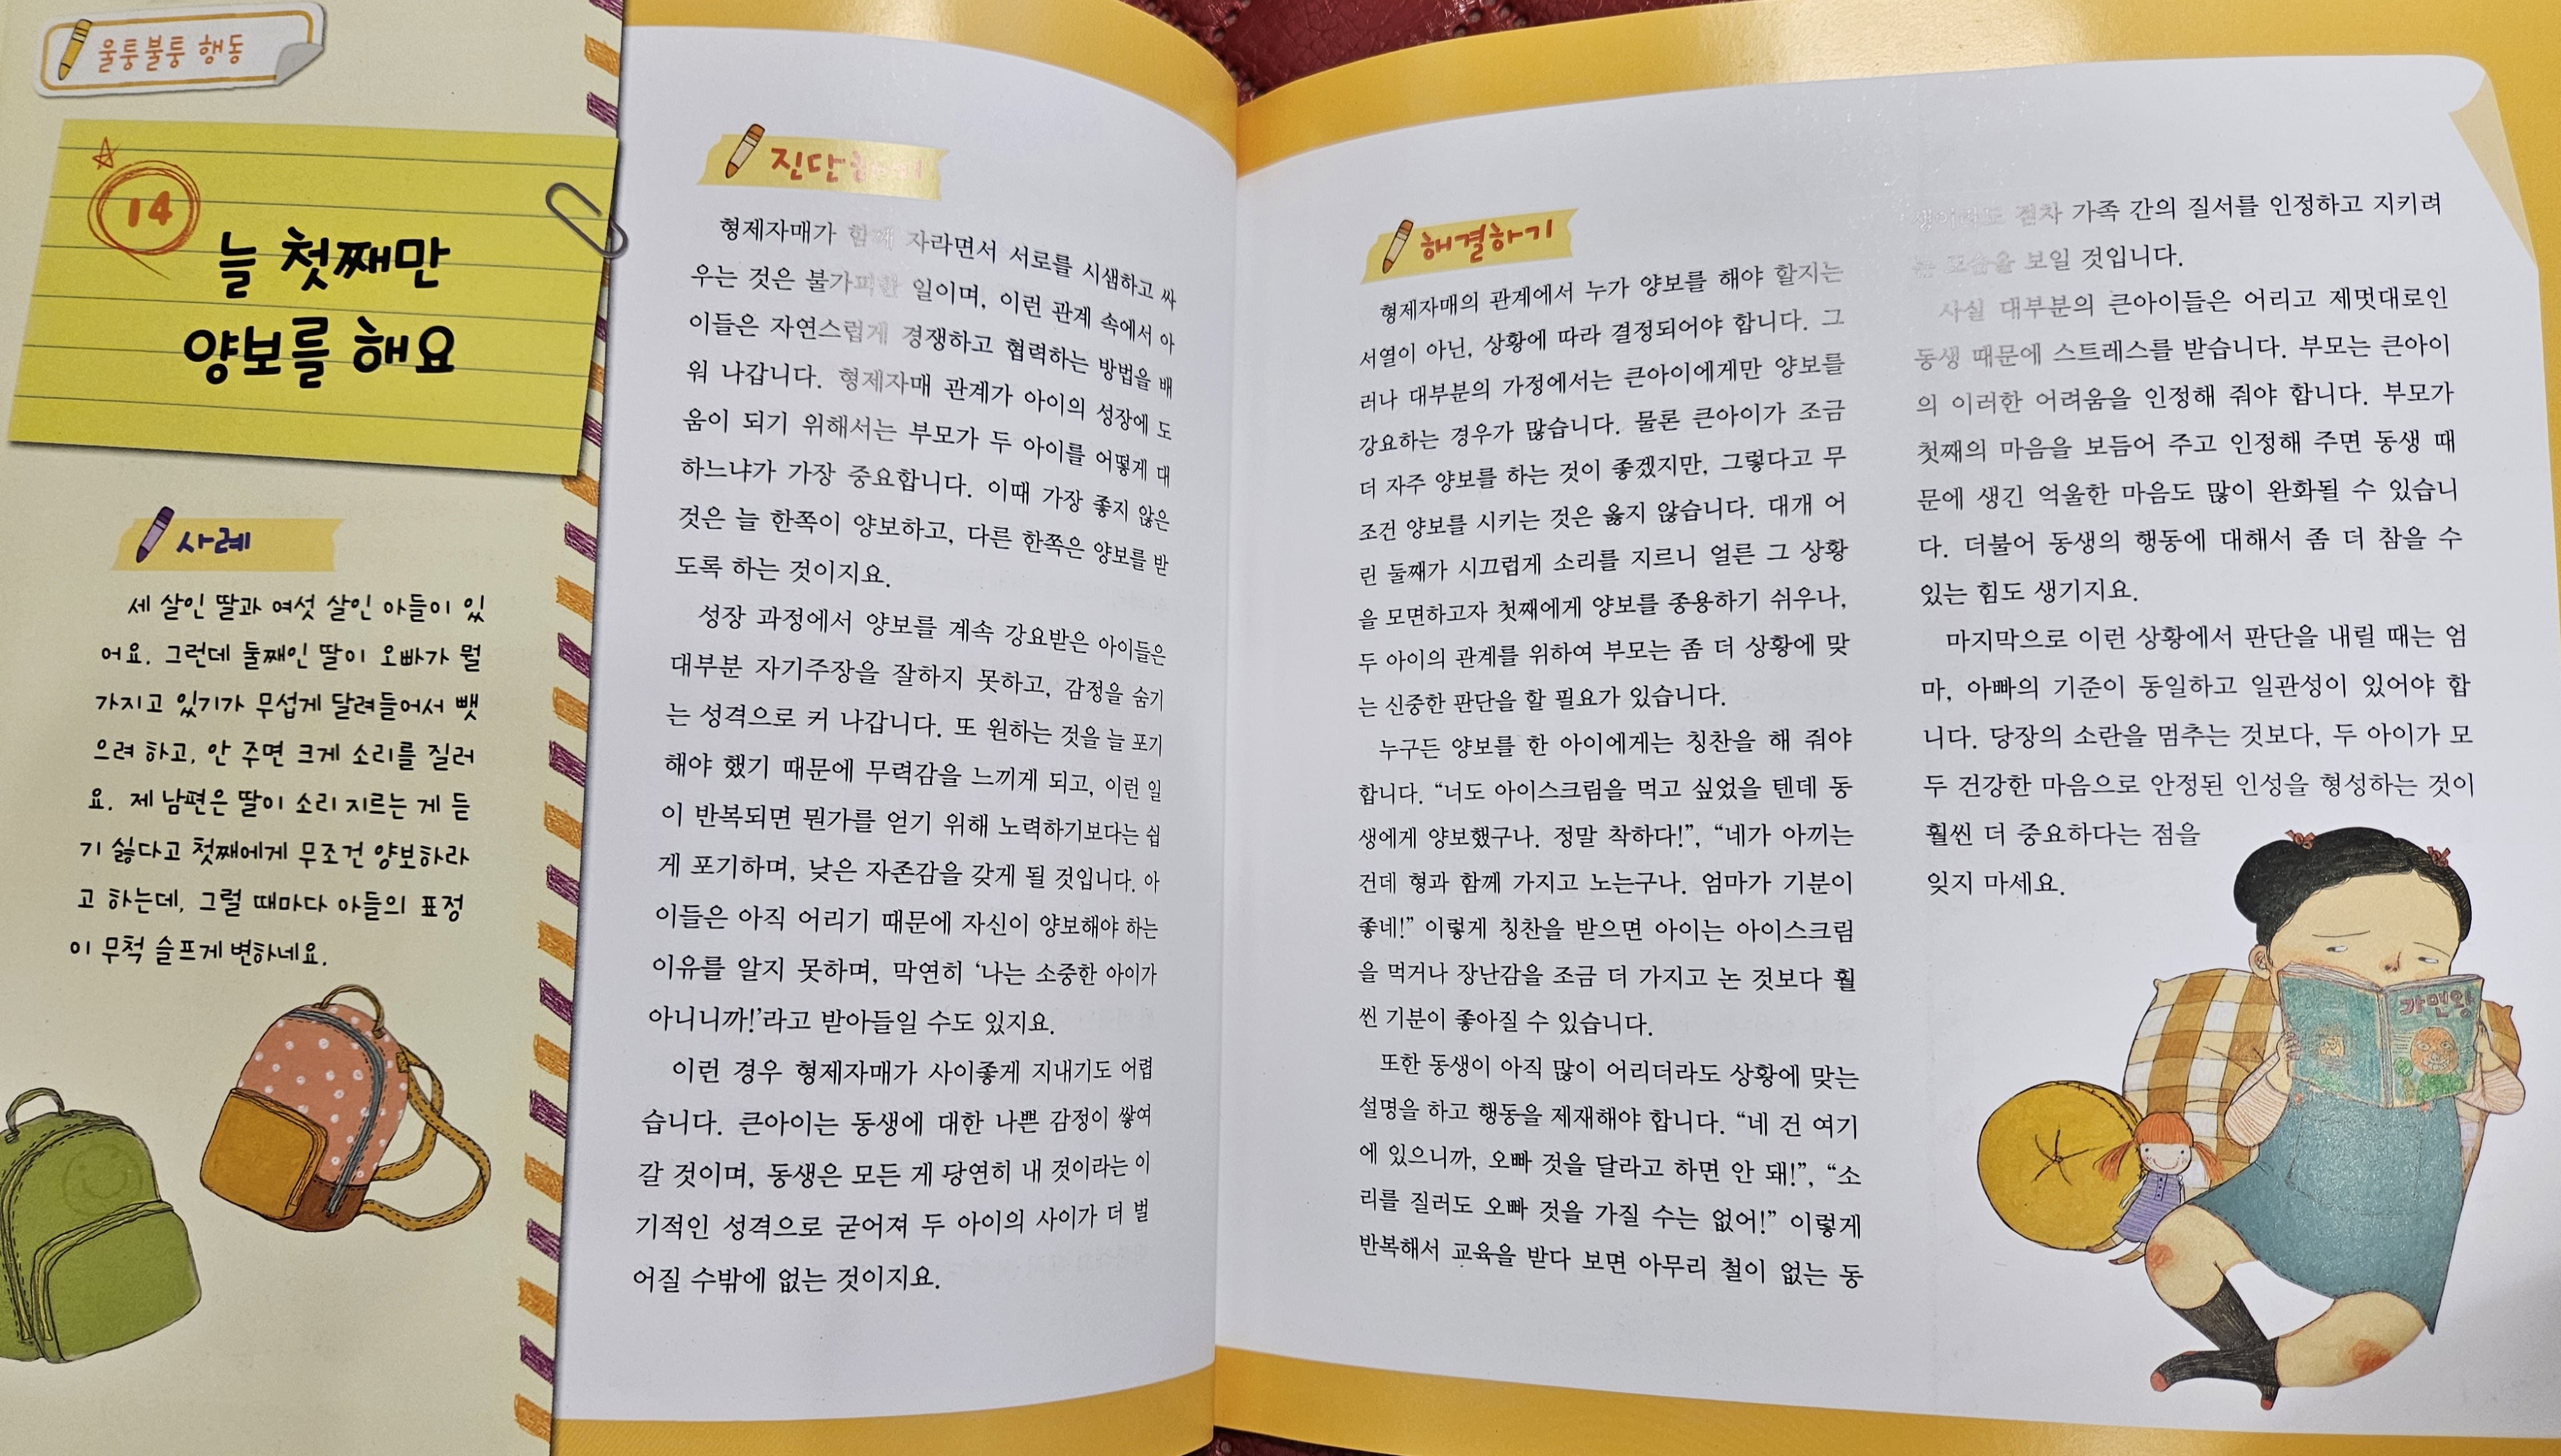 울퉁불퉁 행동
14
늘 첫째만
양보를 해요
사례
세 살인 딸과 여섯 살인 아들이 있
어요. 그런데 둘째인 딸이 오빠가 뭘
가지고 있기가 무섭게 달려들어서 뺏
으려 하고, 안 주면 크게 소리를 질러
요. 제 남편은 딸이 소리 지르는 게 듣
기 싫다고 첫째에게 무조건 양보하라
고 하는데, 그럴 때마다 아들의 표정
이 무척 슬프게 변하네요.
진단하기
형제자매가 함께 자라면서 서로를 시샘하고 싸
우는 것은 불가피한 일이며, 이런 관계 속에서 아
이들은 자연스럽게 경쟁하고 협력하는 방법을 배
워 나갑니다. 형제자매 관계가 아이의 성장에 도
움이 되기 위해서는 부모가 두 아이를 어떻게 대
하느냐가 가장 중요합니다. 이때 가장 좋지 않은
것은 늘 한쪽이 양보하고, 다른 한쪽은 양보를 받
도록 하는 것이지요.
성장 과정에서 양보를 계속 강요받은 아이들은
대부분 자기주장을 잘하지 못하고, 감정을 숨기
는 성격으로 커 나갑니다. 또 원하는 것을 늘 포기
해야 했기 때문에 무력감을 느끼게 되고, 이런 일
이 반복되면 뭔가를 얻기 위해 노력하기보다는 쉽
게 포기하며, 낮은 자존감을 갖게 될 것입니다. 아
이들은 아직 어리기 때문에 자신이 양보해야 하는
이유를 알지 못하며, 막연히 ‘나는 소중한 아이가
아니니까!’라고 받아들일 수도 있지요.
이런 경우 형제자매가 사이좋게 지내기도 어렵
습니다. 큰아이는 동생에 대한 나쁜 감정이 쌓여
갈 것이며, 동생은 모든 게 당연히 내 것이라는 이
기적인 성격으로 굳어져 두 아이의 사이가 더 벌
어질 수밖에 없는 것이지요.
해결하기
형제자매의 관계에서 누가 양보를 해야 할지는
서열이 아닌, 상황에 따라 결정되어야 합니다. 그
러나 대부분의 가정에서는 큰아이에게만 양보를
강요하는 경우가 많습니다. 물론 큰아이가 조금
더 자주 양보를 하는 것이 좋겠지만, 그렇다고 무
조건 양보를 시키는 것은 옳지 않습니다. 대개 어
린 둘째가 시끄럽게 소리를 지르니 얼른 그 상황
을 모면하고자 첫째에게 양보를 종용하기 쉬우나,
두 아이의 관계를 위하여 부모는 좀 더 상황에 맞
는 신중한 판단을 할 필요가 있습니다.
누구든 양보를 한 아이에게는 칭찬을 해 줘야
합니다. “너도 아이스크림을 먹고 싶었을 텐데 동
생에게 양보했구나. 정말 착하다!”, “네가 아끼는
건데 형과 함께 가지고 노는구나. 엄마가 기분이
좋네!” 이렇게 칭찬을 받으면 아이는 아이스크림
을 먹거나 장난감을 조금 더 가지고 논 것보다 훨
씬 기분이 좋아질 수 있습니다.
또한 동생이 아직 많이 어리더라도 상황에 맞는
설명을 하고 행동을 제재해야 합니다. “네 건 여기
에 있으니까, 오빠 것을 달라고 하면 안 돼!”, “소
리를 질러도 오빠 것을 가질 수는 없어!” 이렇게
반복해서 교육을 받다 보면 아무리 철이 없는 동
생이라도 점차 가족 간의 질서를 인정하고 지키려
는 모습을 보일 것입니다.
사실 대부분의 큰아이들은 어리고 제멋대로인
동생 때문에 스트레스를 받습니다. 부모는 큰아이
의 이러한 어려움을 인정해 줘야 합니다. 부모가
첫째의 마음을 보듬어 주고 인정해 주면 동생 때
문에 생긴 억울한 마음도 많이 완화될 수 있습니
다. 더불어 동생의 행동에 대해서 좀 더 참을 수
있는 힘도 생기지요.
마지막으로 이런 상황에서 판단을 내릴 때는 엄
마, 아빠의 기준이 동일하고 일관성이 있어야 합
니다. 당장의 소란을 멈추는 것보다, 두 아이가 모
두 건강한 마음으로 안정된 인성을 형성하는 것이
훨씬 더 중요하다는 점을
잊지 마세요.
가면왕